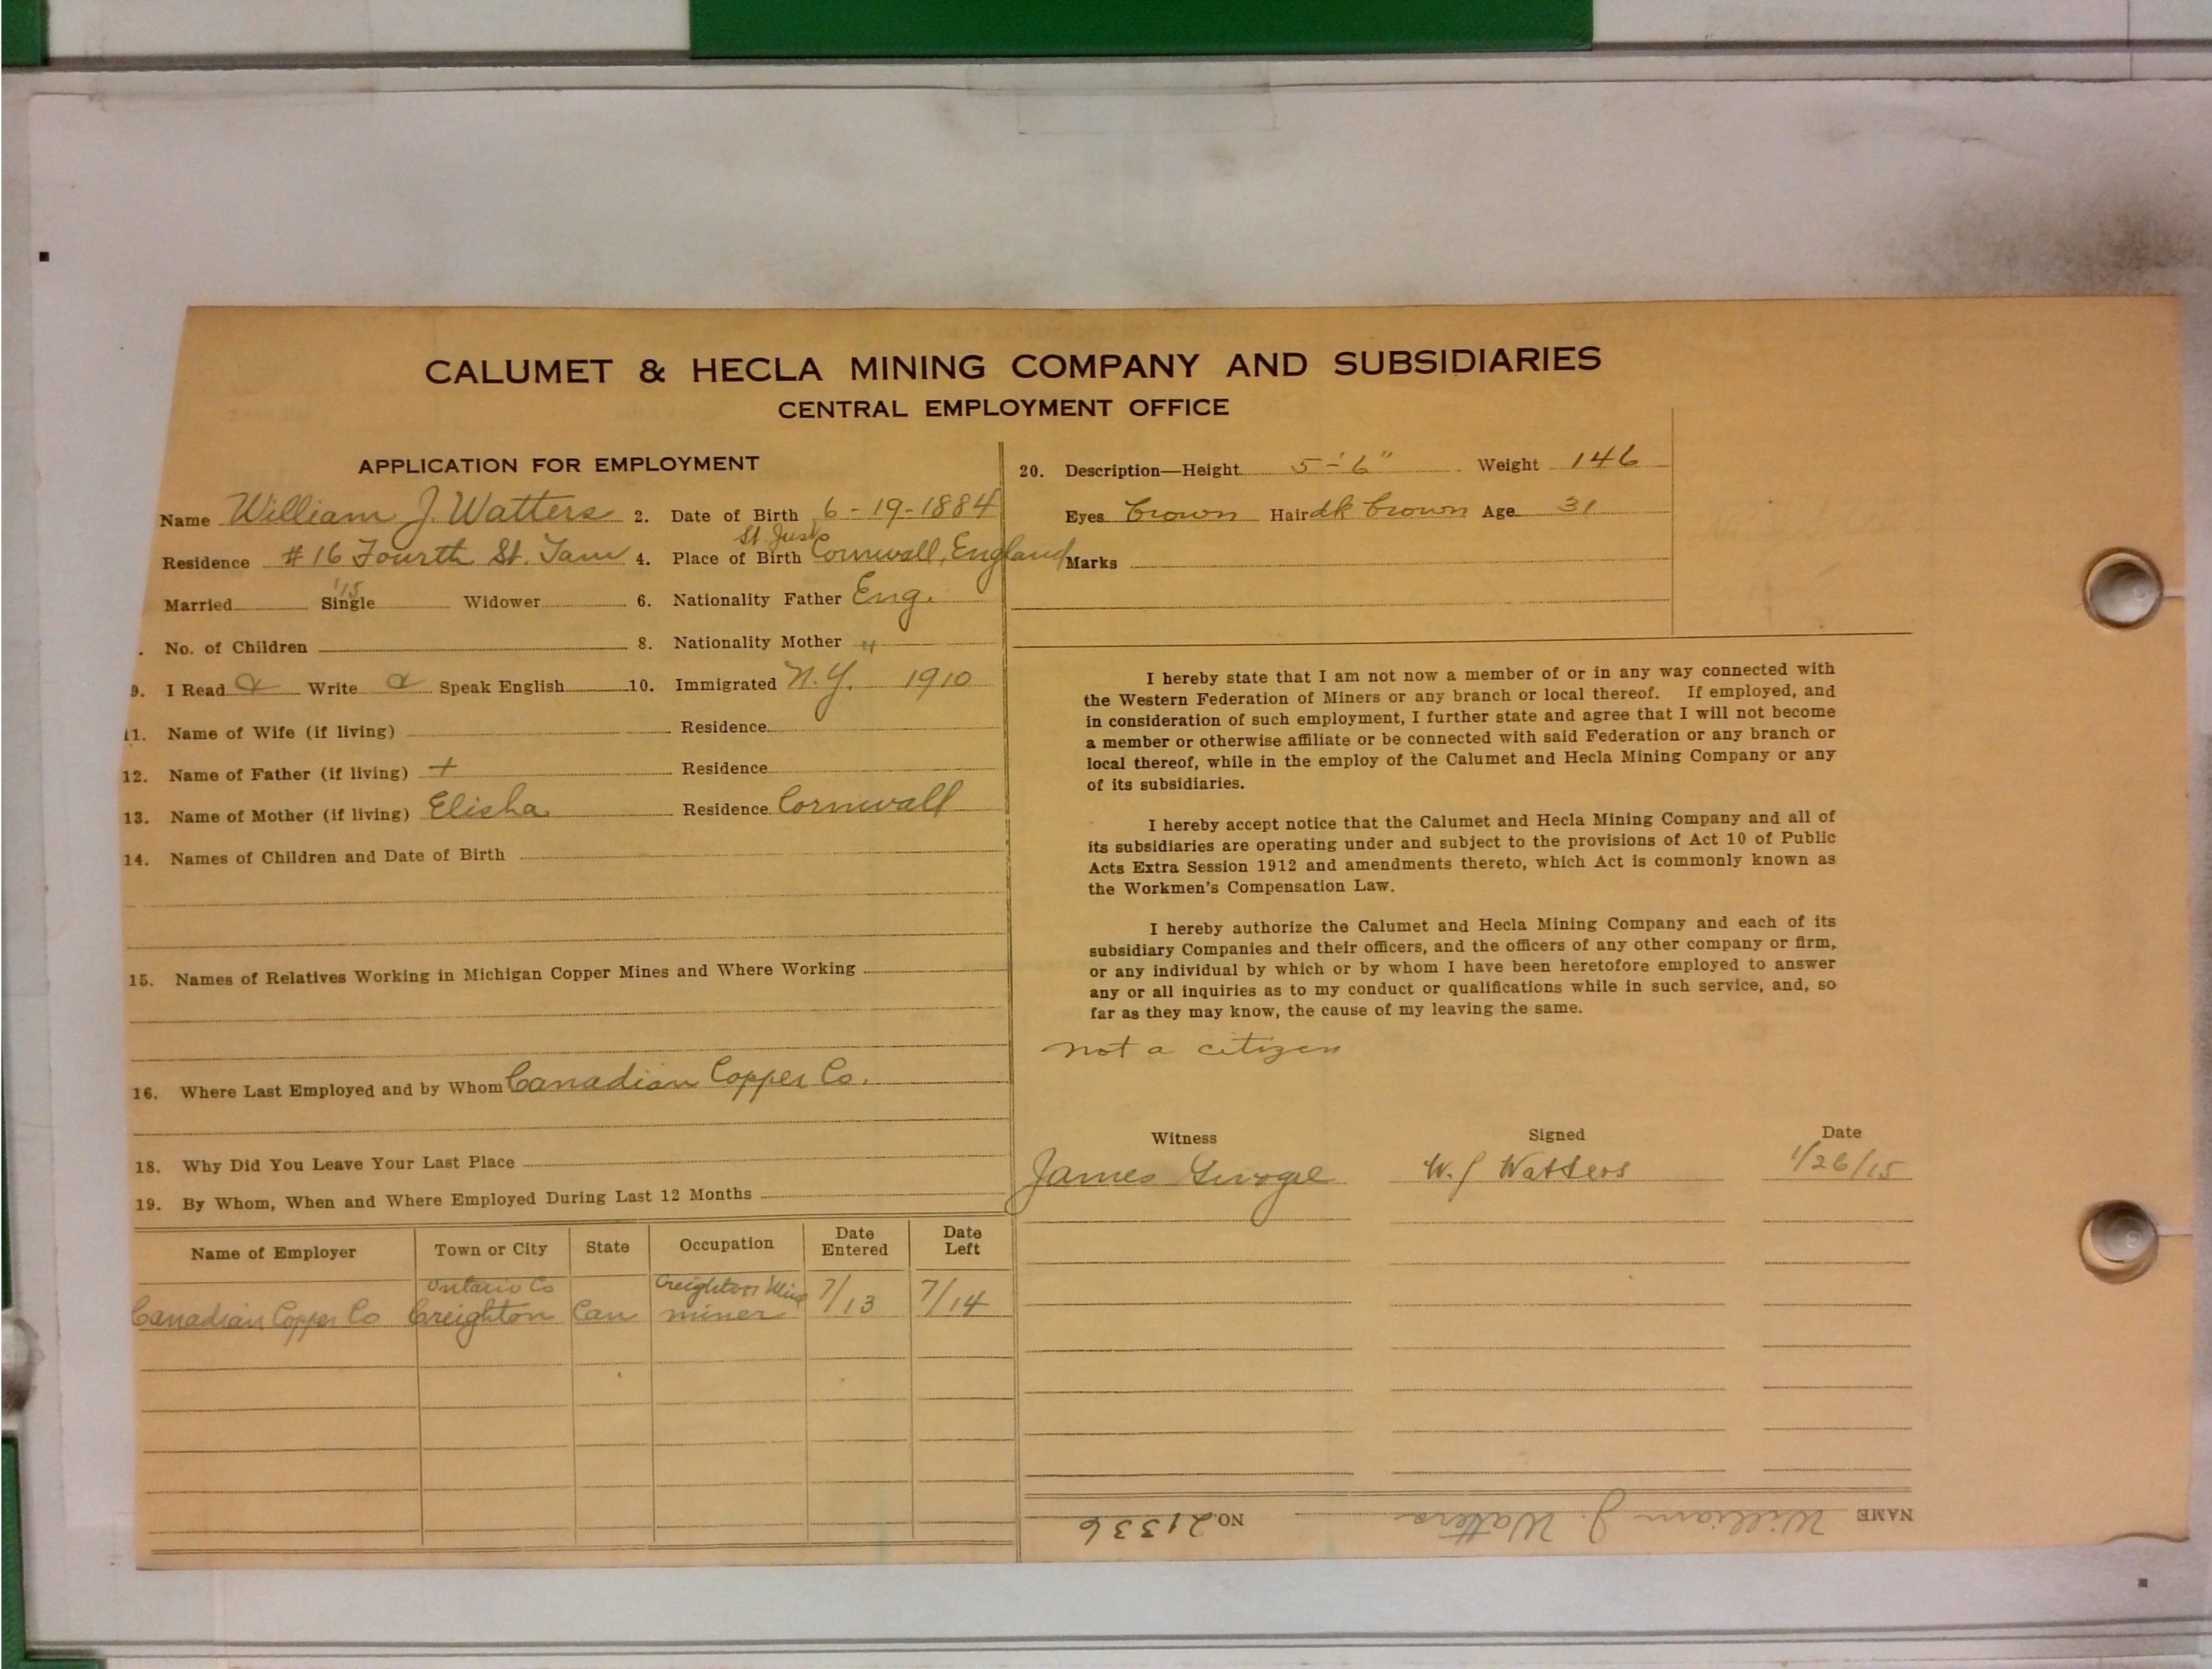 CALUMET & HECLA MINING COMPANY AND SUBSIDIARIES
CENTRAL EMPLOYMENT OFFICE
APPLICATION FOR EMPLOYMENT
Name William J. Watters 2. Date of Birth 6-19-1884
St Just
Residence #16 Fourth St. Tam 4. Place of Birth Cornwall, England
'15
Married Single Widower 6. Nationality Father Eng.
. No. of Children 8. Nationality Mother "
9. I Read Write Speak English 10. Immigrated N.Y. 1910
11. Name of Wife (if living) Residence
12. Name of Father (if living) + Residence
13. Name of Mother (if living) Elisha Residence Cornwall
14. Names of Children and Date of Birth
15. Names of Relatives Working in Michigan Copper Mines and Where Working
16. Where Last Employed and by Whom Canadian Copper Co.
18. Why Did You Leave Your Last Place
19. By Whom, When and Where Employed During Last 12 Months
Name of Employer Town or City State Occupation Date Entered Date Left
Ontario Co Creighton Mine
Canadian Copper Co Creighton Can miner 7/13 7/14
20. Description—Height 5'-6" Weight 146
Eyes brown Hair dk brown Age 31
Marks
I hereby state that I am not now a member of or in any way connected with
the Western Federation of Miners or any branch or local thereof. If employed, and
in consideration of such employment, I further state and agree that I will not become
a member or otherwise affiliate or be connected with said Federation or any branch or
local thereof, while in the employ of the Calumet and Hecla Mining Company or any
of its subsidiaries.
I hereby accept notice that the Calumet and Hecla Mining Company and all of
its subsidiaries are operating under and subject to the provisions of Act 10 of Public
Acts Extra Session 1912 and amendments thereto, which Act is commonly known as
the Workmen's Compensation Law.
I hereby authorize the Calumet and Hecla Mining Company and each of its
subsidiary Companies and their officers, and the officers of any other company or firm,
or any individual by which or by whom I have been heretofore employed to answer
any or all inquiries as to my conduct or qualifications while in such service, and, so
far as they may know, the cause of my leaving the same.
not a citizen
Witness Signed Date
James W. J Watters 1/26/15
NAME William J. Watters NO. 21336